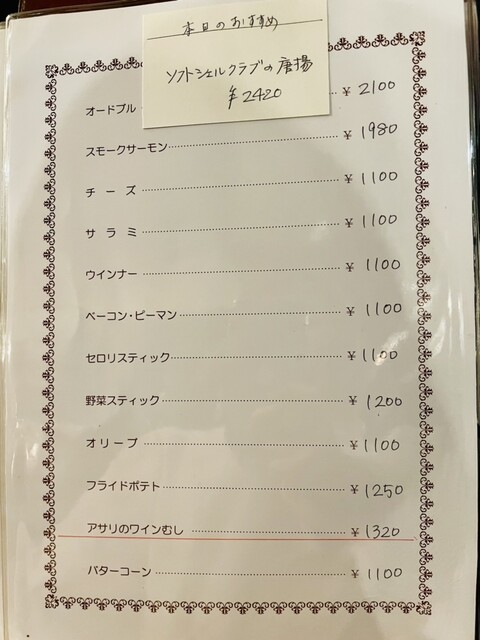 本日のおすすめ
ソフトシェルクラブの唐揚
¥2420
オードブル ¥ 2100
スモークサーモン ¥ 1980
チーズ ¥ 1100
サラミ ¥ 1100
ウインナー ¥ 1100
ベーコン・ピーマン ¥ 1100
セロリスティック ¥ 1100
野菜スティック ¥ 1200
オリーブ ¥ 1100
フライドポテト ¥ 1250
アサリのワインむし ¥ 1320
バターコーン ¥ 1100